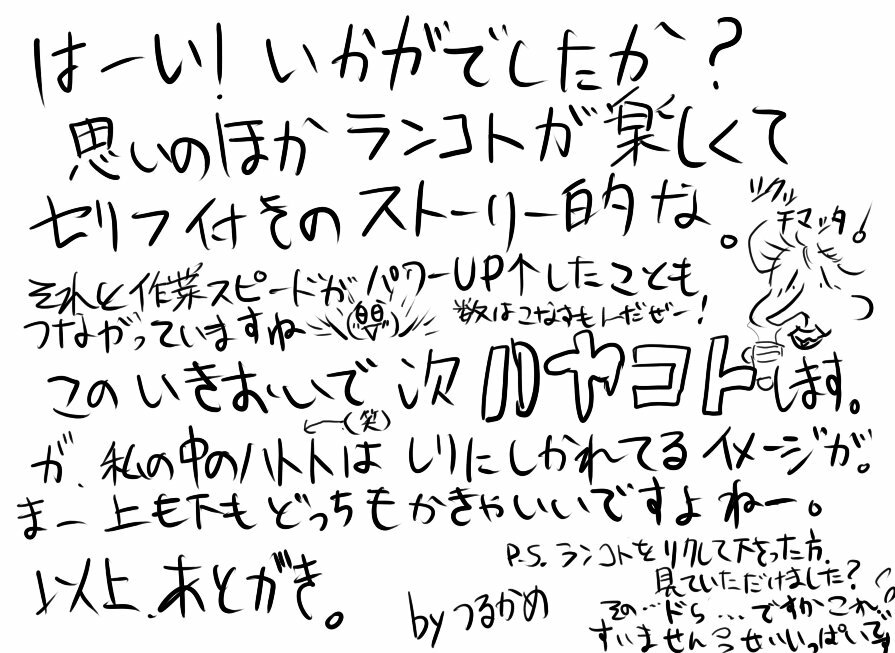 はーい！いかがでしたか？
思いのほかランコトが楽しくて
セリフ付きのストーリー的な。
ツクッ
チマッタ！
それと作業スピードがパワーUP↑したことも
つながっていますね
数はこなすもんだぜー！
このいきおいで次ルヤコトします。
←(笑)
が、私の中のハトトはしりにしかれてるイメージが。
まー上も下もどっちもかきゃいいですよねー。
以上、あとがき。
by つるかめ
P.S. ランコトをリクして下さった方、
見ていただけました？
その…ドS…ですかこれ…
すいません せいいっぱいです